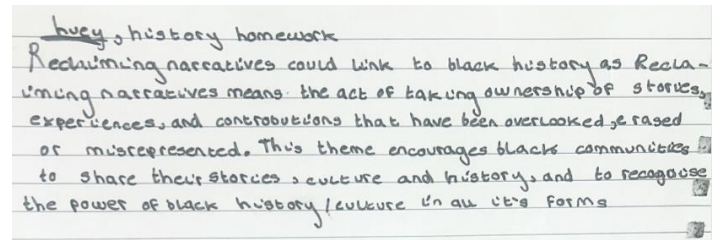 huey, history homework
Reclaiming narratives could link to black history as Recla-
iming narratives means the act of taking ownership of stories,
experiences, and controbutions that have been overlooked, erased
or misrepresented. This theme encourages black communities
to share their stories, culture and history, and to recognise
the power of black history/culture in all it's forms